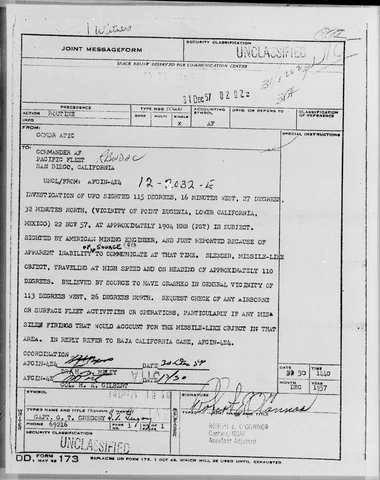 1 Witness
JOINT MESSAGEFORM
SECURITY CLASSIFICATION
UNCLASSIFIED
SPACE BELOW RESERVED FOR COMMUNICATION CENTER
31 Dec 57 02 02z
PRECEDENCE
TYPE MSG (Check)
ACCOUNTING SYMBOL
ORIG. OR REFERS TO
CLASSIFICATION OF REFERENCE
ACTION ROUTINE
BOOK
MULTI
SINGLE
INFO
X
AF
FROM:
SPECIAL INSTRUCTIONS
COMDR ATIC
TO:
COMMANDER AF
PACIFIC FLEET
SAN DIEGO, CALIFORNIA
UNCL/FROM: AFCIN-4E4 12-2032-E
INVESTIGATION OF UFO SIGHTED 115 DEGREES, 16 MINUTES WEST, 27 DEGREES,
32 MINUTES NORTH, (VICINITY OF POINT EUGENIA, LOWER CALIFORNIA,
MEXICO) 22 NOV 57, AT APPROXIMATELY 1904 HRS (PST) IS SUBJECT.
SIGHTED BY AMERICAN MINING ENGINEER, AND JUST REPORTED BECAUSE OF
APPARENT INABILITY OF SOURCE TO COMMUNICATE AT THAT TIME. SLENDER, MISSILE-LIKE
OBJECT, TRAVELING AT HIGH SPEED AND ON HEADING OF APPROXIMATELY 110
DEGREES. BELIEVED BY SOURCE TO HAVE CRASHED IN GENERAL VICINITY OF
113 DEGREES WEST, 26 DEGREES NORTH. REQUEST CHECK OF ANY AIRBORNE
OR SURFACE FLEET ACTIVITIES OR OPERATIONS, PARTICULARLY IF ANY MIS-
SILES FIRINGS THAT WOULD ACCOUNT FOR THE MISSILE-LIKE OBJECT IN THAT
AREA. IN REPLY REFER TO BAJA CALIFORNIA CASE, AFCIN-4E4.
COORDINATION
AFCIN-4E4 DATE 30 Dec 57
AFCIN-4E
COL H. K. GILBERT
DATE 30
TIME 1440
MONTH DEC
YEAR 1957
SYMBOL
SIGNATURE
TYPED NAME AND TITLE (Signature, if required)
CAPT. G. T. GREGORY
PHONE 69216
PAGE 1
NR. OF PAGES 1
ROBERT E. O'CONNOR
Captain, USAF
Assistant Adjutant
SECURITY CLASSIFICATION
UNCLASSIFIED
DD FORM 173
REPLACES DD FORM 173, 1 OCT 49, WHICH WILL BE USED UNTIL EXHAUSTED